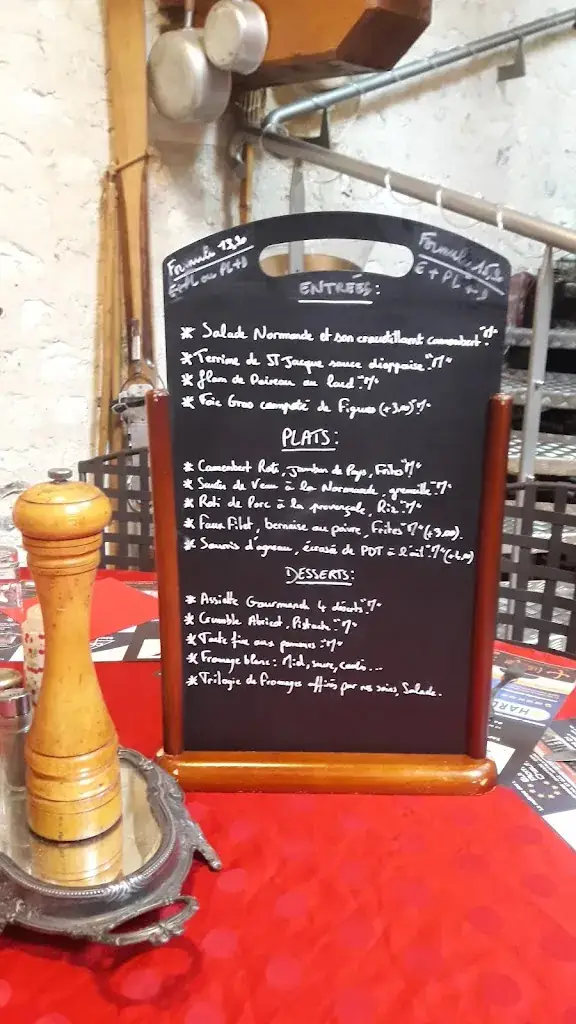 Formule 13,90
E+PL ou PL+D
Formule 15,90
E+PL+D
ENTRÉES:
* Salade Normande et son croustillant camembert "M"
* Terrine de ST Jacque sauce dieppoise "M"
* flan de Poireau au lard "M"
* Foie Gras compoté de Figues (+3,00) "M"
PLATS:
* Camembert Roti, Jambon de Pays, Frites "M"
* Sauté de Veau à la Normande, grenaille "M"
* Roti de Porc à la provençale, Riz "M"
* Faux Filet, bernaise ou poivre, Frites "M" (+3,00).
* Souris d'agneau, écrasé de PDT à l'ail "M" (+4,00)
DESSERTS:
* Assiette Gourmande 4 déserts "M"
* Crumble Abricot, Pistache "M"
* Tarte fine aux pommes "M"
* Fromage blanc: Miel, sucre, coulis...
* Trilogie de fromages affinés par nos soins, Salade.